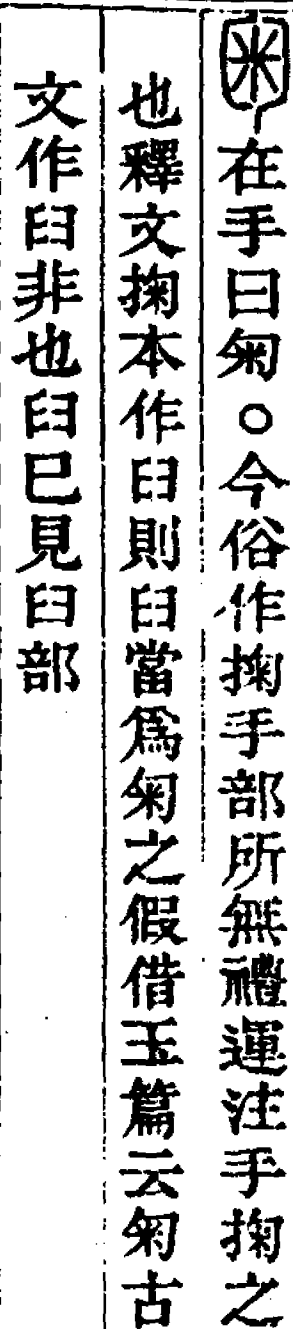 在手曰匊○今俗作掬手部所無禮運注手掬之
也釋文掬本作𦥑則𦥑當爲匊之假借玉篇云匊古
文作𦥑非也𦥑已見𦥑部